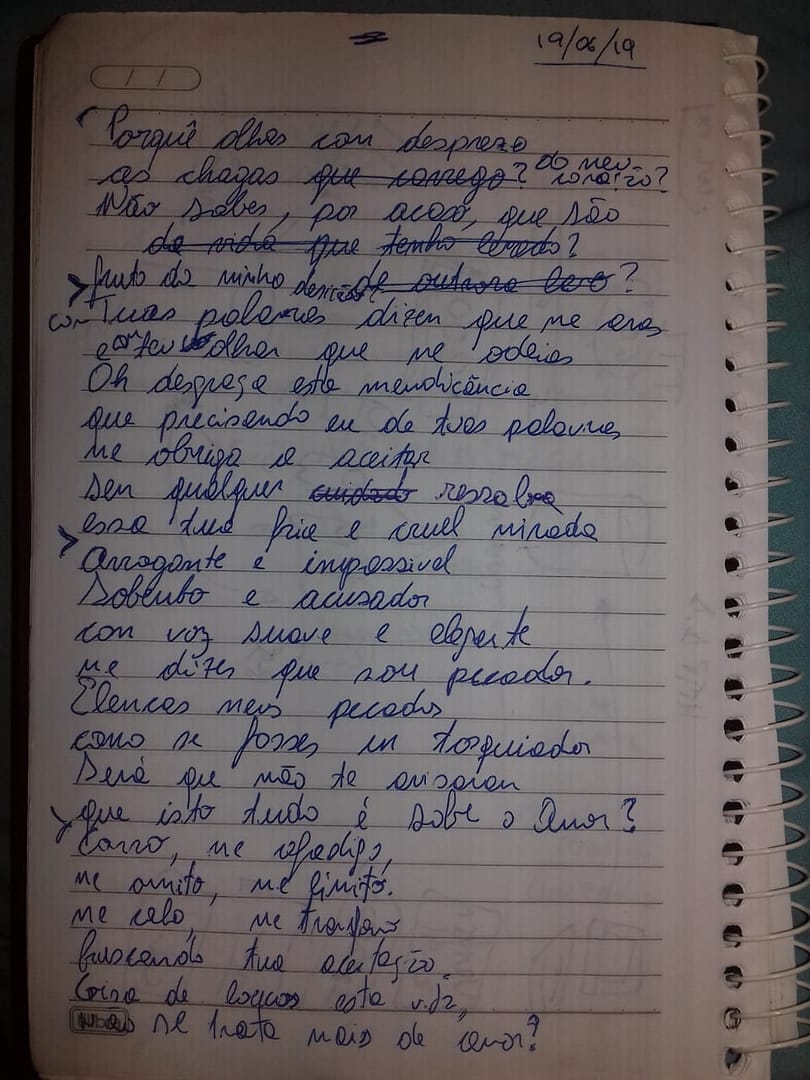 19/06/19
Porquê olhas com desprezo
as chagas que carrego? do meu coração?
Não sabes, por acaso, que são
da vida que tenho levado?
fruto da minha de outrora ?
com Tuas palavras dizem que me
e com teu olhar que me odeias
Oh desgraça esta mendicância
que precisando eu de tuas palavras
me obriga a aceitar
sem qualquer cuidado ressalva
essa tua fria e cruel mirada
Arrogante e impassível
Soberbo e acusador
com voz suave e elegante
me dizes que sou pecador.
Elencas meus pecados
como se fosses um
Será que não te avisaram
que isto tudo é sobe o Amor?
Corro, me
me omito, me limito.
me calo, me
buscando tua aceitação.
Coisa de loucos esta vida,
se trata mais de amor?